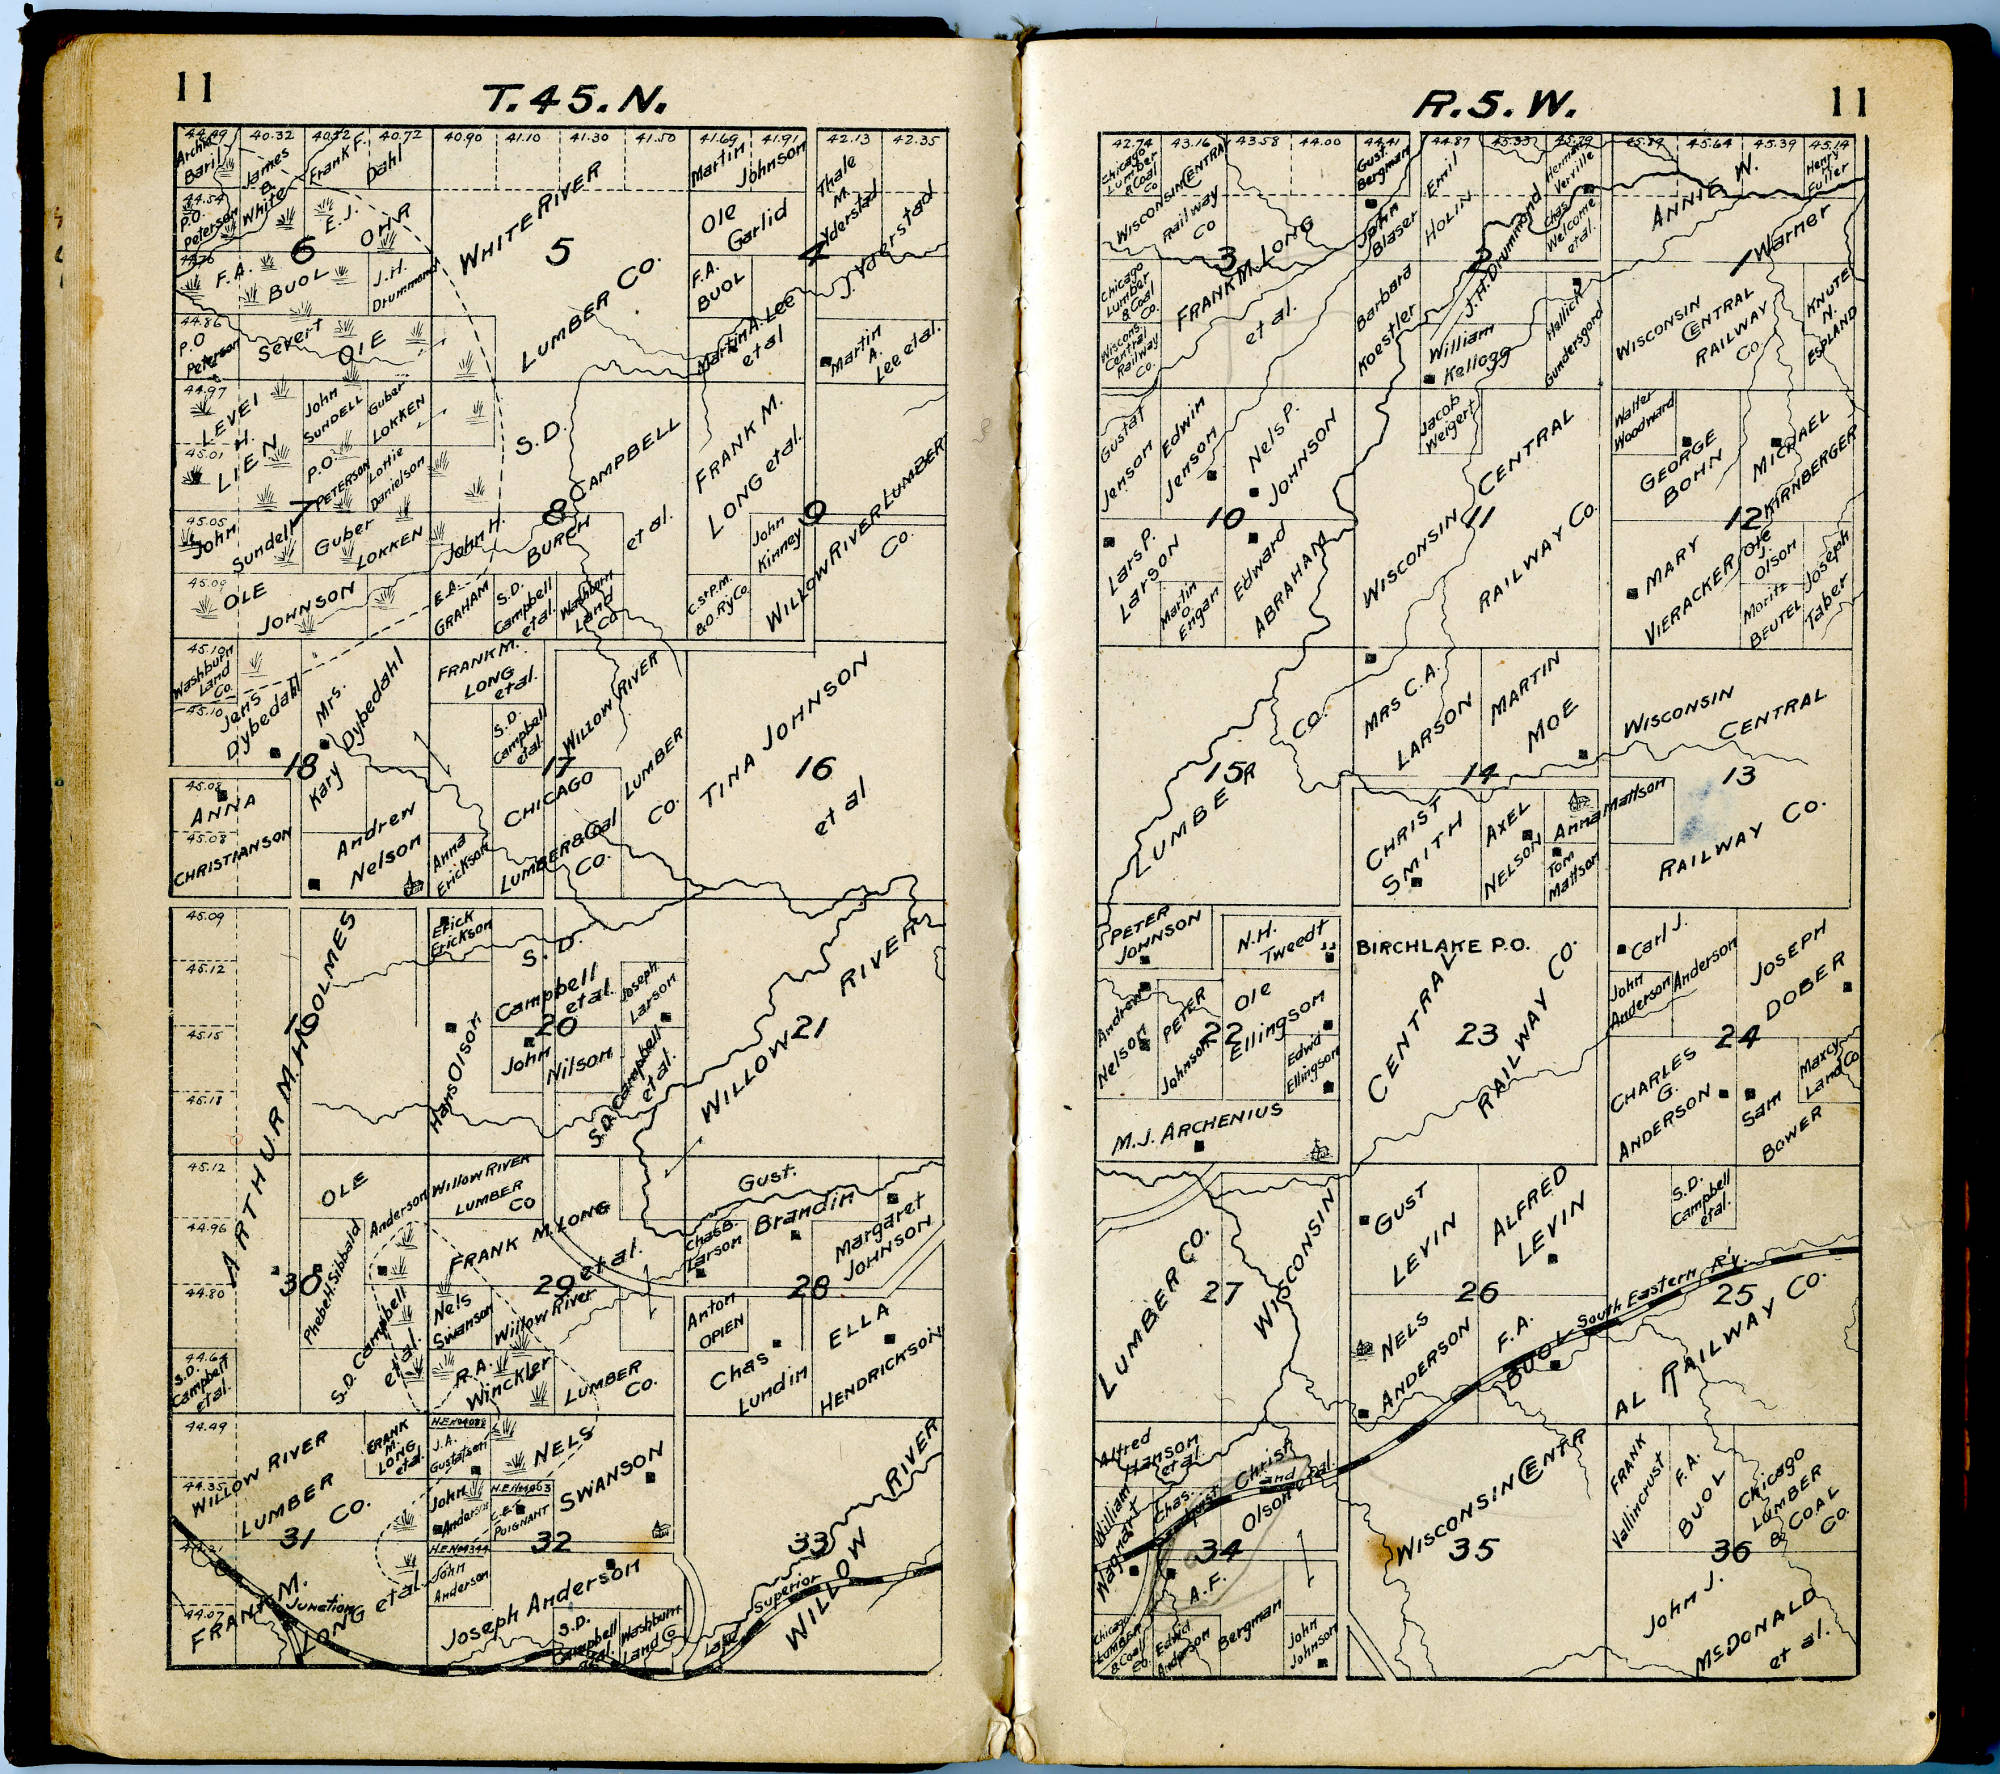 11
T. 45. N.
44.49 40.32 40.52 40.72 40.90 41.10 41.30 41.50 41.69 41.91 42.13 42.35
Archie
Baril
James
&
White
Frank F.
Dahl
44.54
P.O.
Peterson
E.J.
OHR
6
F.A.
BUOL
J.H.
Drummond
44.86
P.O
Peterson
Severt
OIE
WHITE RIVER
5
LUMBER CO.
Martin
Johnson
Thale
M.
Yderstad
Ole
Garlid
4
J. Yderstad
F.A.
BUOL
Martin A. Lee
et al
Martin
A.
Lee et al.
44.97
LEVEI
H.
LIEN
45.01
John
SUNDELL
Guber
LOKKEN
P.O.
PETERSON
Lottie
Danielson
7
45.05
John
Sundell
Guber
LOKKEN
45.09
OLE
JOHNSON
S.D.
CAMPBELL
et al.
8
John H.
BURCH
E.A.
GRAHAM
S.D.
Campbell
et al.
Washburn
Land
Co
FRANK M.
LONG et al.
9
John
Kinney
WILLOW RIVER LUMBER
Co.
C.St.P.M.
&O.RyCo.
45.10
Washburn
Land
Co.
45.10
Jens
Dybedahl
Mrs.
Kary Dybedahl
18
45.08
ANNA
45.08
CHRISTIANSON
Andrew
Nelson
FRANK M.
LONG
et al.
S.D.
Campbell
et al.
WILLOW RIVER
LUMBER
CO.
17
CHICAGO
LUMBER & Coal
CO.
Anna
Erickson
TINA JOHNSON
et al
16
45.09
45.12
45.15
45.18
ARTHUR M. HOOLMES
19
Erick
Erickson
S. D.
Campbell
et al.
20
Joseph
Larson
Hans Olson
John
Nilson
S.D. Campbell
et al.
WILLOW RIVER
21
45.12
44.96
44.80
44.64
OLE
Anderson
Phebe H. Sibbald
30
S.D. Campbell
et al.
S.D.
Campbell
et al.
WILLOW RIVER
LUMBER
CO
FRANK M. LONG
et al.
29
Nels
Swanson
Willow River
LUMBER
Co.
R.A.
Winckler
Gust.
Brandin
Chas B.
Larson
Margaret
JOHNSON
28
Anton
OPIEN
Chas
Lundin
ELLA
HENDRICKSON
44.49
44.35
44.21
44.07
WILLOW RIVER
LUMBER
CO.
31
FRANK
M.
LONG
et al.
FRANK M.
LONG et al.
Junction
J.A.
Gustafson
John
Anderson
POIGNANT
NELS
SWANSON
32
John
Anderson
Joseph Anderson
S.D.
Campbell
et al.
Washburn
Land Co
33
WILLOW RIVER
Lake Superior
11
R. 5. W.
42.74 43.16 43.58 44.00 44.41 44.87 45.33 45.79 45.89 45.64 45.39 45.14
Chicago
Lumber
& Coal
Co
WISCONSIN CENTRAL
Railway
Co
3
FRANK M. LONG
et al.
Chicago
Lumber
& Coal
Co.
Wiscons.
Central
Railway
Co.
Gust
Bergman
Emil
HOLIN
John
Blaser
Herman
Verville
Chas
Welcome
et al.
2
J.H. Drummond
Barbara
Koestler
William
Kellogg
Hallick
Gundersgord
ANNIE W.
Warner
Henry
Fuller
1
WISCONSIN
CENTRAL
RAILWAY
CO.
KNUTE
N.
ESPLAND
Gustaf
Jenson
Edwin
Jenson
Nels P.
JOHNSON
10
Lars P.
Larson
Martin
O.
Engan
Edward
ABRAHAM
Jacob
Weigert
WISCONSIN CENTRAL
11
RAILWAY CO.
Walter
Woodward
GEORGE
BOHN
MICHAEL
KIRNBERGER
12
MARY
VIERACKER
Ole
J.
Olson
Moritz
BEUTEL
Joseph
Taber
15
LUMBER CO.
MRS C.A.
LARSON
MARTIN
MOE
14
CHRIST
SMITH
AXEL
NELSON
Anna Mattson
Tom
Mattson
WISCONSIN
CENTRAL
13
RAILWAY CO.
PETER
JOHNSON
N.H.
Tweedt
Andrew
Nelson
PETER
Johnson
22
Ole
Ellingson
Edwd
Ellingson
M.J. ARCHENIUS
BIRCHLAKE P.O.
CENTRAL
23
RAILWAY CO.
Carl J.
Anderson
John
Anderson
JOSEPH
DOBER
24
CHARLES
G.
ANDERSON
Sam
BOWER
Maxcy
Land Co
LUMBER CO.
27
WISCONSIN
GUST
LEVIN
ALFRED
LEVIN
26
NELS
ANDERSON
F.A.
BUOL
S.D.
Campbell
et al.
South Eastern Ry.
25
AL RAILWAY CO.
Alfred
Hanson
et al
William
Wagnart
Chas.
Christ
and Pal.
Olson
34
A.F.
Bergman
Chicago
LUMBER
& Coal
Co.
Edwd
Anderson
John
Johnson
WISCONSIN CENTR
35
FRANK
Vallincrust
F.A.
BUOL
Chicago
LUMBER
& COAL
Co.
36
John J.
McDONALD
et al.